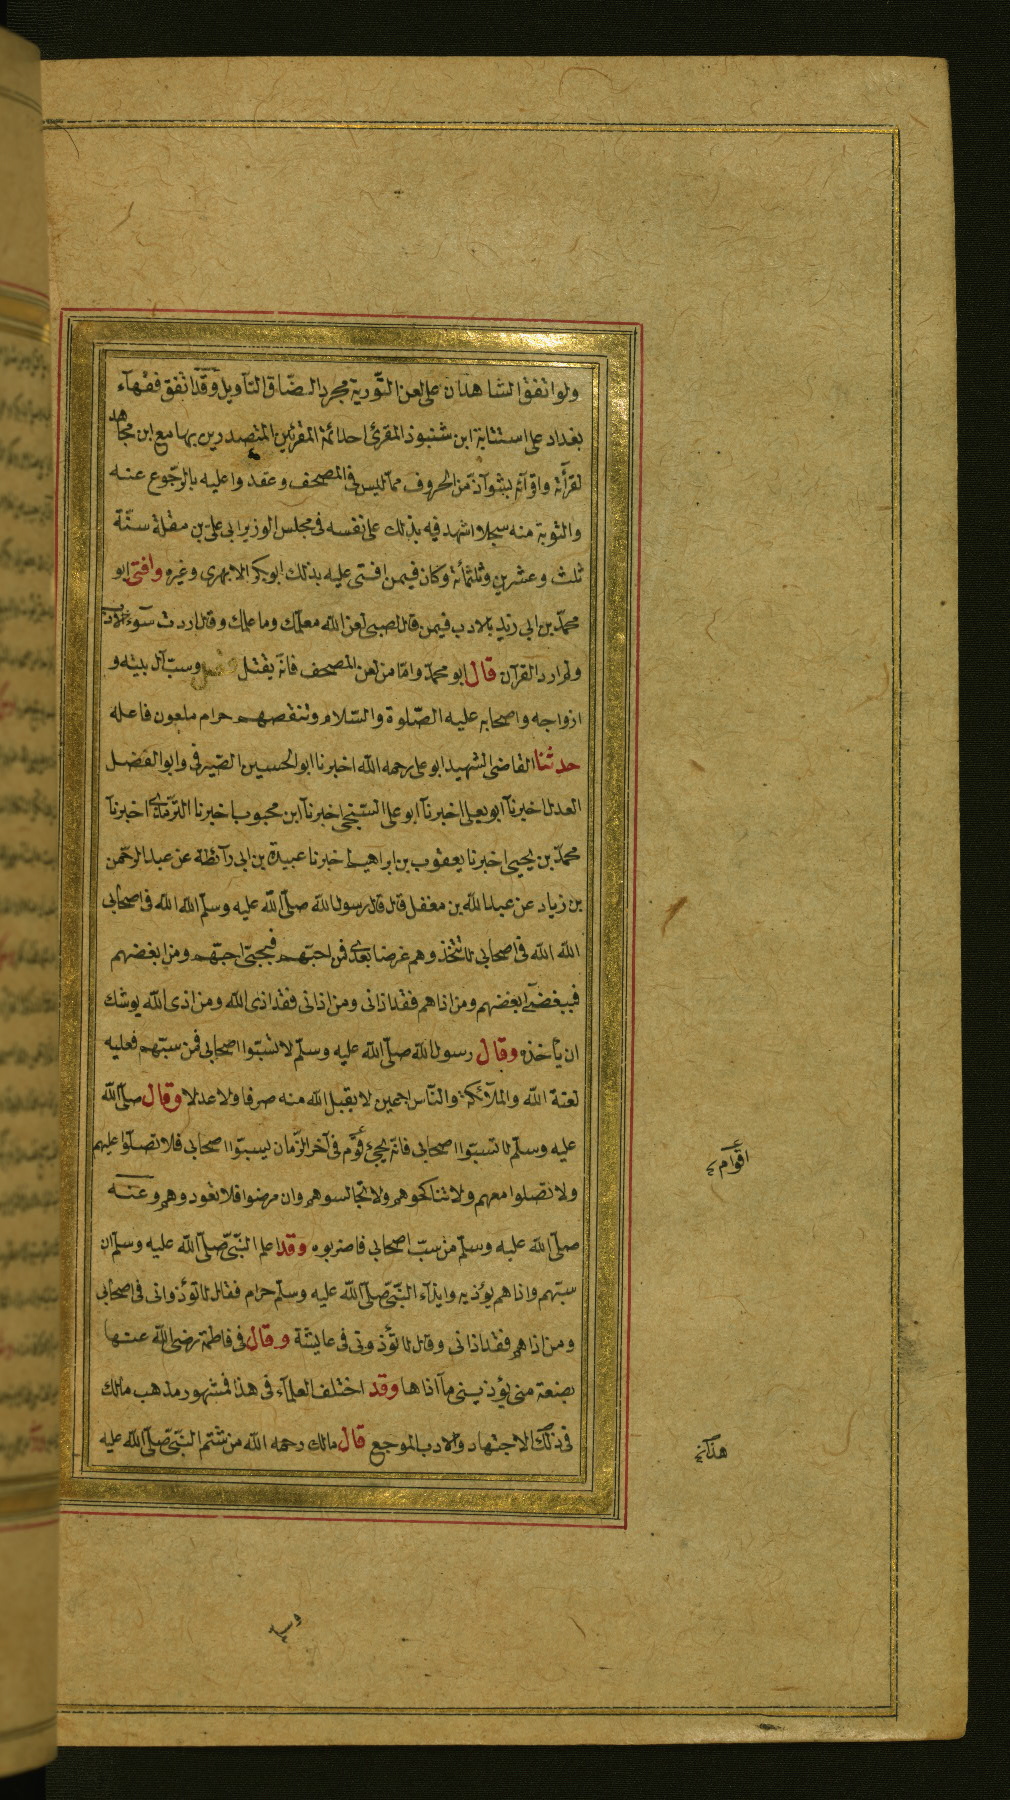 ولو اتفق الشاهدان على لعن التورية مجردا لضاق التأويل وقد اتفق فقهاء
بغداد على استتابة ابن شنبوذ المقرئ احد ائمة المقرئين المتصدرين بها مع ابن مجاهد
لقرأته واقرآئه بشوآذ من الحروف مما ليس في المصحف وعقدوا عليه بالرجوع عنه
والتوبة منه سجلا اشهد فيه بذلك على نفسه في مجلس الوزير ابى على بن مقلة سنة
ثلث وعشرين وثلثمائة وكان فيمن افتى عليه بذلك ابو بكر الابهرى وغيره وافتى ابو
محمد بن ابى زيد بالادب فيمن قال لصبى لعن الله معلمك وما علمك وقال اردت سوء الادب
ولم ارد القرآن قال ابو محمد واما من لعن المصحف فانه يقتل وسب آل بيته و
ازواجه واصحابه عليه الصلوة والسلام وتنقصهم حرام ملعون فاعله
حدثنا القاضى الشهيد ابو على رحمه الله اخبرنا ابو الحسين الصيرفى وابو الفضل
العدل اخبرنا ابو يعلى اخبرنا ابو على السنجى اخبرنا ابن محبوب اخبرنا الترمذى اخبرنا
محمد بن يحيى اخبرنا يعقوب بن ابراهيم اخبرنا عبيدة بن ابى رآئطة عن عبد الرحمن
بن زياد عن عبد الله بن مغفل قال قال رسول الله صلى الله عليه وسلم الله الله فى اصحابى
الله الله فى اصحابى لا تتخذوهم غرضا بعدى فمن احبهم فبحبى احبهم ومن ابغضهم
فببغضى ابغضهم ومن اذاهم فقد اذانى ومن اذانى فقد اذى الله ومن اذى الله يوشك
ان يأخذه وقال رسول الله صلى الله عليه وسلم لا تسبوا اصحابى فمن سبهم فعليه
لعنة الله والملآئكة والناس اجمعين لا يقبل الله منه صرفا ولا عدلا وقال صلى الله
عليه وسلم لا تسبوا اصحابى فانه يجيئ قوم فى آخر الزمان يسبوا اصحابى فلا تصلوا عليهم
ولا تصلوا معهم ولا تناكحوهم ولا تجالسوهم وان مرضوا فلا تعودوهم وعنه
صلى الله عليه وسلم من سب اصحابى فاضربوه وقد اعلم النبى صلى الله عليه وسلم ان
سبهم واذاهم يؤذيه وايذاء النبى صلى الله عليه وسلم حرام فقال لا تؤذوانى فى اصحابى
ومن اذاهم فقد اذانى وقال لا تؤذونى فى عايشة وقال فى فاطمة رضى الله عنها
بضعة منى يؤذينى ما آذاها وقد اختلف العلماء فى هذا فمشهور مذهب مالك
فى ذلك الاجتهاد والادب الموجع قال مالك رحمه الله من شتم النبى صلى الله عليه
اقوام
وسلم